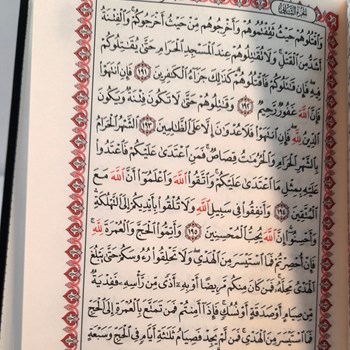 الجزء الثاني
وَاقْتُلُوهُمْ حَيْثُ ثَقِفْتُمُوهُمْ وَأَخْرِجُوهُمْ مِنْ حَيْثُ أَخْرَجُوكُمْ وَالْفِتْنَةُ
أَشَدُّ مِنَ الْقَتْلِ وَلَا تُقَاتِلُوهُمْ عِنْدَ الْمَسْجِدِ الْحَرَامِ حَتَّى يُقَاتِلُوكُمْ
فِيهِ فَإِنْ قَاتَلُوكُمْ فَاقْتُلُوهُمْ كَذَلِكَ جَزَاءُ الْكَافِرِينَ ١٩١ فَإِنِ انْتَهَوْا
فَإِنَّ اللَّهَ غَفُورٌ رَحِيمٌ ١٩٢ وَقَاتِلُوهُمْ حَتَّى لَا تَكُونَ فِتْنَةٌ وَيَكُونَ
الدِّينُ لِلَّهِ فَإِنِ انْتَهَوْا فَلَا عُدْوَانَ إِلَّا عَلَى الظَّالِمِينَ ١٩٣ الشَّهْرُ الْحَرَامُ
بِالشَّهْرِ الْحَرَامِ وَالْحُرُمَاتُ قِصَاصٌ فَمَنِ اعْتَدَى عَلَيْكُمْ فَاعْتَدُوا
عَلَيْهِ بِمِثْلِ مَا اعْتَدَى عَلَيْكُمْ وَاتَّقُوا اللَّهَ وَاعْلَمُوا أَنَّ اللَّهَ مَعَ
الْمُتَّقِينَ ١٩٤ وَأَنْفِقُوا فِي سَبِيلِ اللَّهِ وَلَا تُلْقُوا بِأَيْدِيكُمْ إِلَى التَّهْلُكَةِ
وَأَحْسِنُوا إِنَّ اللَّهَ يُحِبُّ الْمُحْسِنِينَ ١٩٥ وَأَتِمُّوا الْحَجَّ وَالْعُمْرَةَ لِلَّهِ
فَإِنْ أُحْصِرْتُمْ فَمَا اسْتَيْسَرَ مِنَ الْهَدْيِ وَلَا تَحْلِقُوا رُءُوسَكُمْ حَتَّى يَبْلُغَ
الْهَدْيُ مَحِلَّهُ فَمَنْ كَانَ مِنْكُمْ مَرِيضًا أَوْ بِهِ أَذًى مِنْ رَأْسِهِ فَفِدْيَةٌ
مِنْ صِيَامٍ أَوْ صَدَقَةٍ أَوْ نُسُكٍ فَإِذَا أَمِنْتُمْ فَمَنْ تَمَتَّعَ بِالْعُمْرَةِ إِلَى الْحَجِّ
فَمَا اسْتَيْسَرَ مِنَ الْهَدْيِ فَمَنْ لَمْ يَجِدْ فَصِيَامُ ثَلَاثَةِ أَيَّامٍ فِي الْحَجِّ وَسَبْعَةٍ